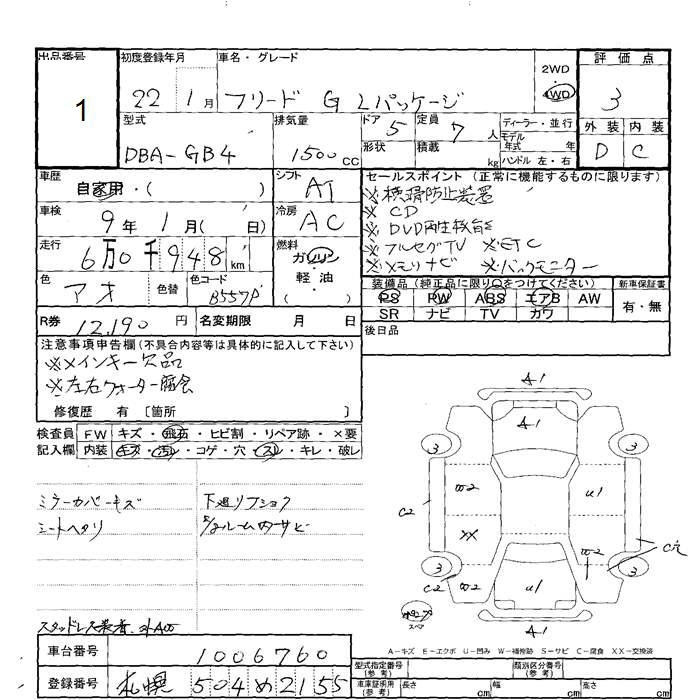 出品番号 初度登録年月 車名・グレード 2WD 4WD 評価点
1 22年1月 フリード G Lパッケージ 3
型式 排気量 ドア 5 定員 7人 ディーラー・並行 外装 内装
DBA-GB4 1500cc 形状 積載 kg モデル年式 年 D C
ハンドル 左・右
車歴 自家用・( ) シフト AT セールスポイント (正常に機能するものに限ります)
車検 9年1月( 日) 冷房 AC ※横滑防止装置
※ CD
※ DVD再生機能
走行 6万0千948km 燃料 ガソリン・軽油・( ) ※フルセグTV ※ETC
※メモリナビ ※バックモニター
色 アオ 色替 色コード B557P 装備品 (純正品に限り○をつけてください) 新車保証書
PS PW ABS エアB AW 有・無
R券 12,190円 名変期限 月 日 SR ナビ TV カワ
注意事項申告欄(不具合内容等は具体的に記入して下さい) 後日品
※メインキー欠品
※左右クォーター腐食
修復歴 有 〔箇所 〕
検査員 FW キズ・飛石・ヒビ割・リペア跡・×要
記入欄 内装 キズ・汚レ・コゲ・穴・スレ・キレ・破レ
ミラーカバーキズ 下廻リ
シートヘタリ ルーム内サビ
A1
A1
3 3
W2 U1
C2
XX
W2 C穴
3 3
C2 W2 U1
スペア A1
スタッドレス装着
A-キズ E-エクボ U-凹み W-補修跡 S-サビ C-腐食 XX-交換済
車台番号 1006760 型式指定番号(参考) 類別区分番号(参考)
登録番号 札幌 504 め 2155 車庫証明用(参考) 長さ cm 幅 cm 高さ cm